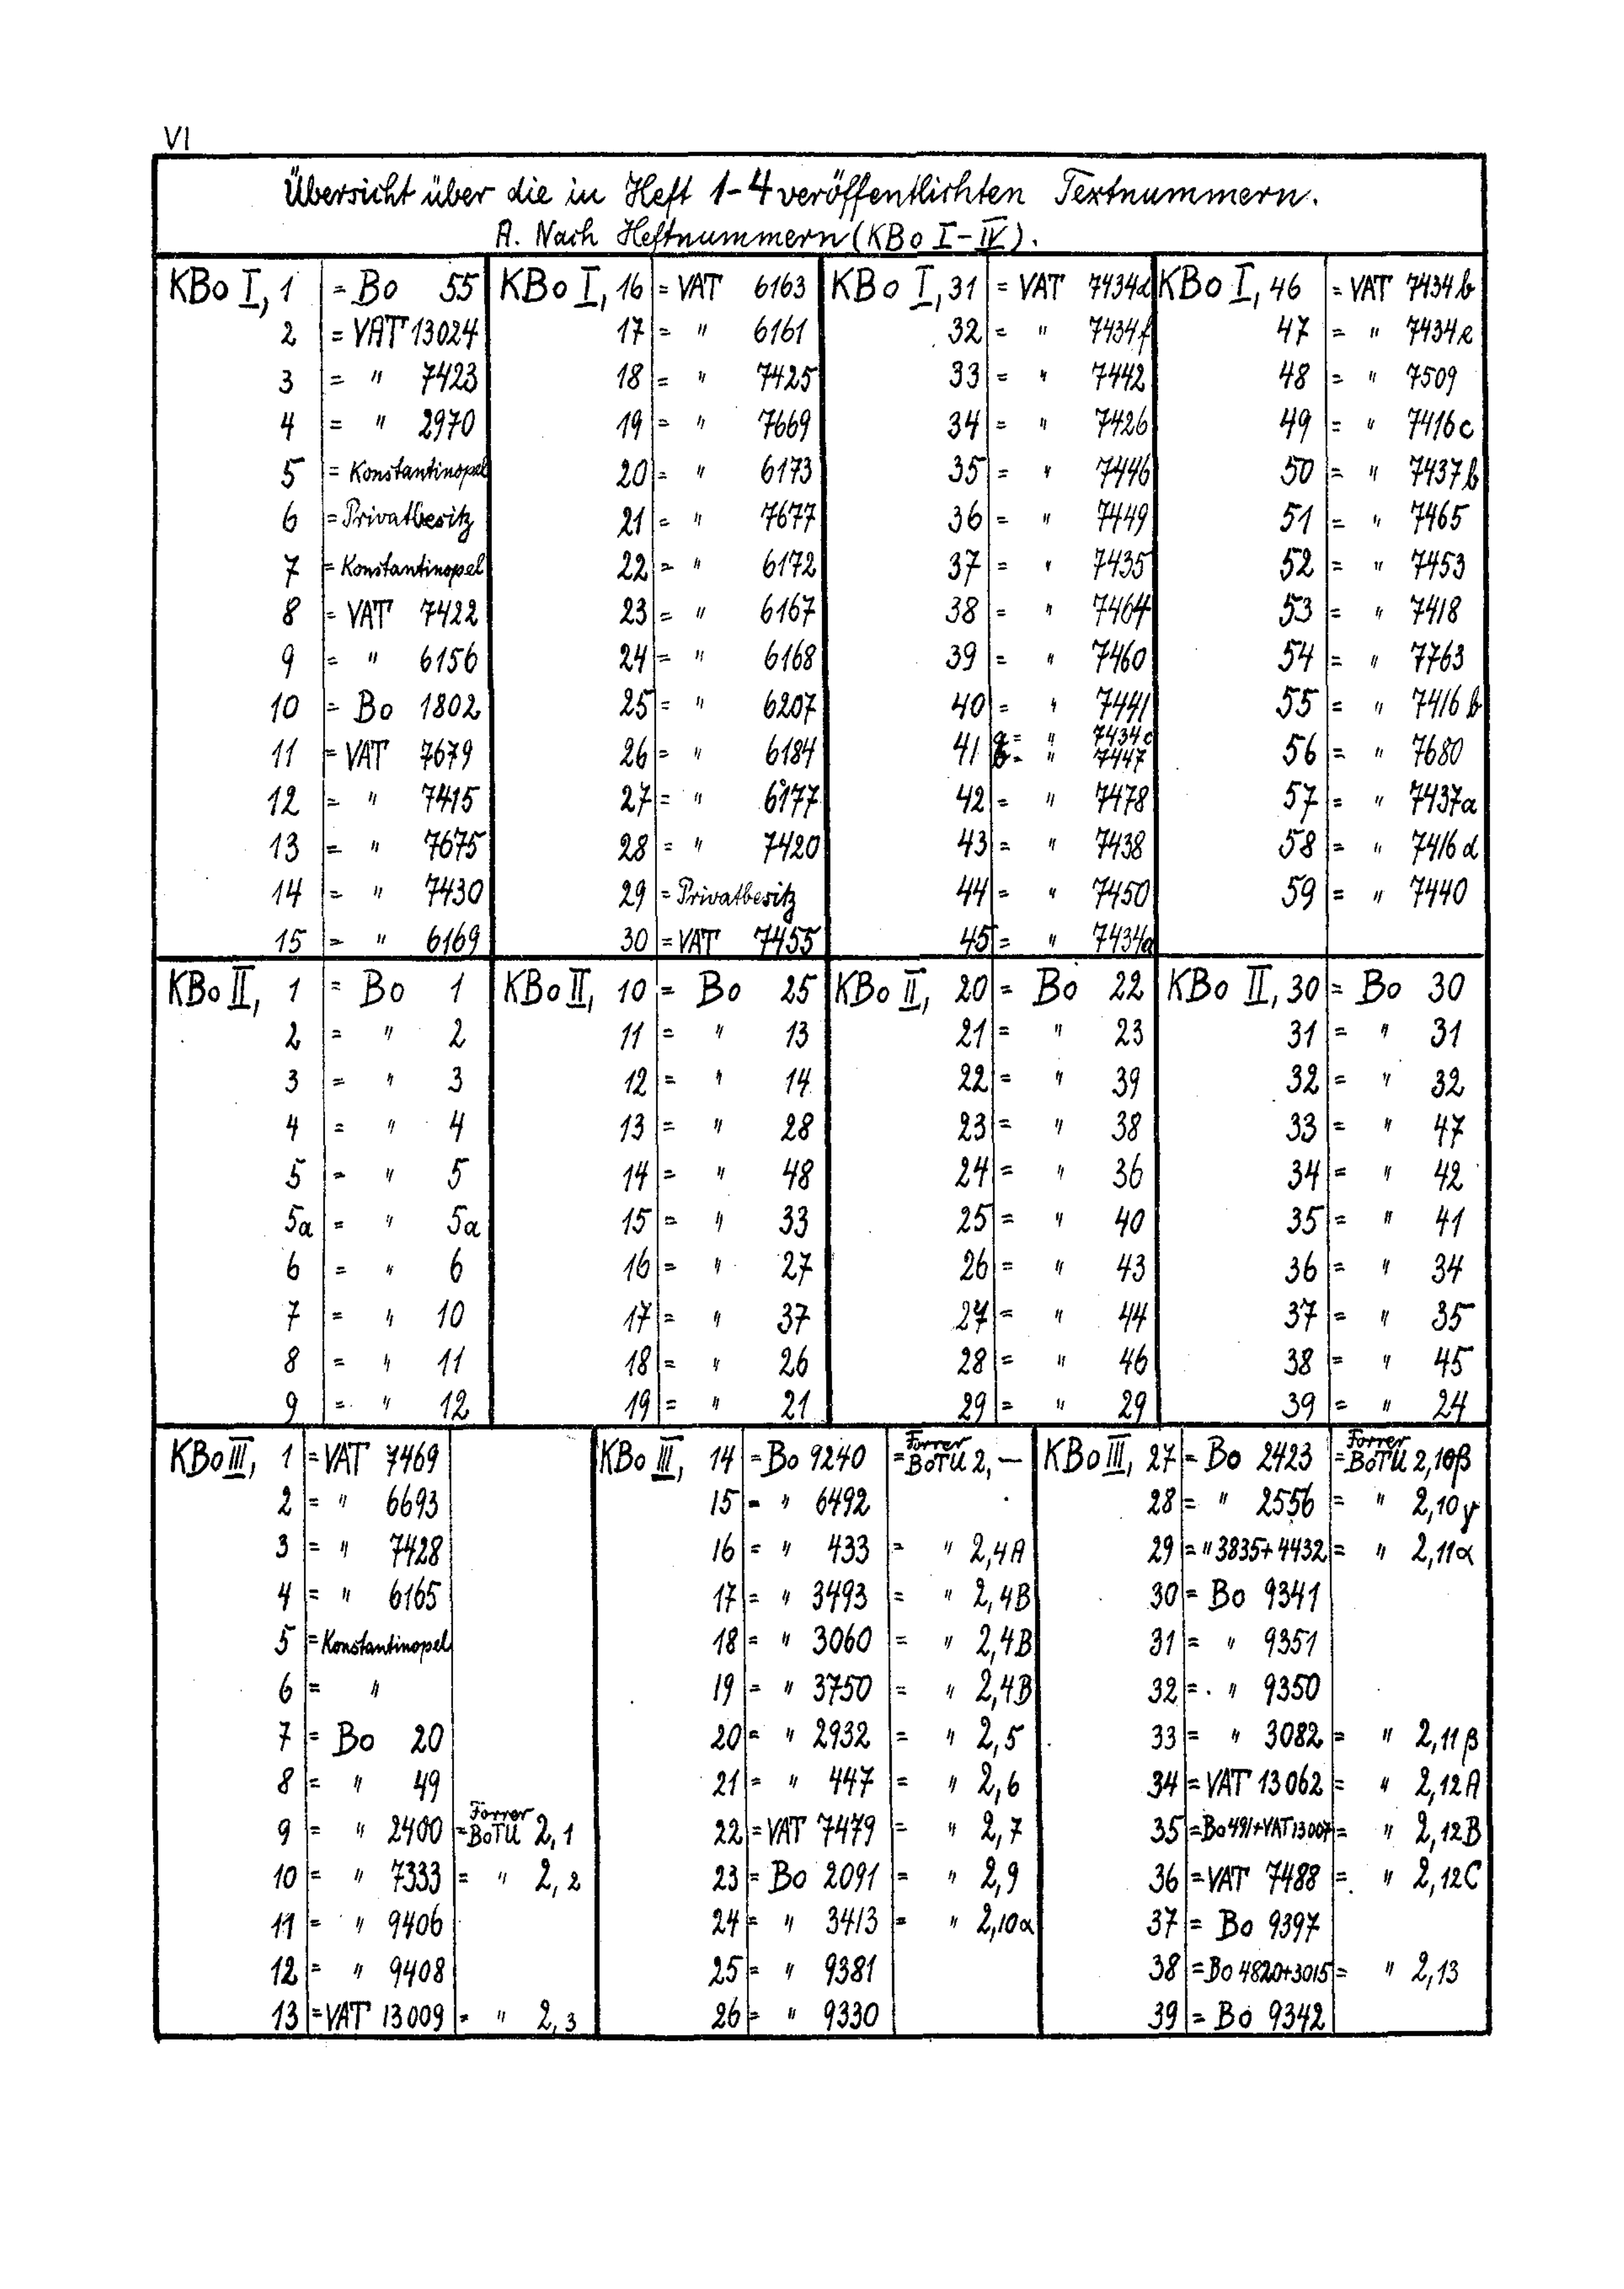 VI
Übersicht über die in Heft 1-4 veröffentlichten Textnummern.
A. Nach Heftnummern (KBo I-IV).
KBo I, 1 = Bo 55 KBo I, 16 = VAT 6163 KBo I, 31 = VAT 7434d KBo I, 46 = VAT 7434b
2 = VAT 13024 17 = " 6161 32 = " 7434f 47 = " 7434e
3 = " 7423 18 = " 7425 33 = " 7442 48 = " 7509
4 = " 2970 19 = " 7669 34 = " 7426 49 = " 7416c
5 = Konstantinopel 20 = " 6173 35 = " 7446 50 = " 7437b
6 = Privatbesitz 21 = " 7677 36 = " 7449 51 = " 7465
7 = Konstantinopel 22 = " 6172 37 = " 7435 52 = " 7453
8 = VAT 7422 23 = " 6167 38 = " 7464 53 = " 7418
9 = " 6156 24 = " 6168 39 = " 7460 54 = " 7763
10 = Bo 1802 25 = " 6207 40 = " 7441 55 = " 7416b
11 = VAT 7679 26 = " 6184 41 a = " 7434c b = " 7447 56 = " 7680
12 = " 7415 27 = " 6177 42 = " 7478 57 = " 7437a
13 = " 7675 28 = " 7420 43 = " 7438 58 = " 7416d
14 = " 7430 29 = Privatbesitz 44 = " 7450 59 = " 7440
15 = " 6169 30 = VAT 7455 45 = " 7434a
KBo II, 1 = Bo 1 KBo II, 10 = Bo 25 KBo II, 20 = Bo 22 KBo II, 30 = Bo 30
2 = " 2 11 = " 13 21 = " 23 31 = " 31
3 = " 3 12 = " 14 22 = " 39 32 = " 32
4 = " 4 13 = " 28 23 = " 38 33 = " 47
5 = " 5 14 = " 48 24 = " 36 34 = " 42
5a = " 5a 15 = " 33 25 = " 40 35 = " 41
6 = " 6 16 = " 27 26 = " 43 36 = " 34
7 = " 10 17 = " 37 27 = " 44 37 = " 35
8 = " 11 18 = " 26 28 = " 46 38 = " 45
9 = " 12 19 = " 21 29 = " 29 39 = " 24
KBo III, 1 = VAT 7469 KBo III, 14 = Bo 9240 = Forrer BoTU 2, — KBo III, 27 = Bo 2423 = Forrer BoTU 2,10β
2 = " 6693 15 = " 6492 28 = " 2556 = " 2,10γ
3 = " 7428 16 = " 433 = " 2,4A 29 = " 3835+4432 = " 2,11α
4 = " 6165 17 = " 3493 = " 2,4B 30 = Bo 9341
5 = Konstantinopel 18 = " 3060 = " 2,4B 31 = " 9351
6 = " 19 = " 3750 = " 2,4B 32 = " 9350
7 = Bo 20 20 = " 2932 = " 2,5 33 = " 3082 = " 2,11β
8 = " 49 21 = " 447 = " 2,6 34 = VAT 13062 = " 2,12A
9 = " 2400 = Forrer BoTU 2,1 22 = VAT 7479 = " 2,7 35 = Bo 491+VAT 13007 = " 2,12B
10 = " 7333 = " 2,2 23 = Bo 2091 = " 2,9 36 = VAT 7488 = " 2,12C
11 = " 9406 24 = " 3413 = " 2,10α 37 = Bo 9397
12 = " 9408 25 = " 9381 38 = Bo 4820+3015 = " 2,13
13 = VAT 13009 = " 2,3 26 = " 9330 39 = Bo 9342